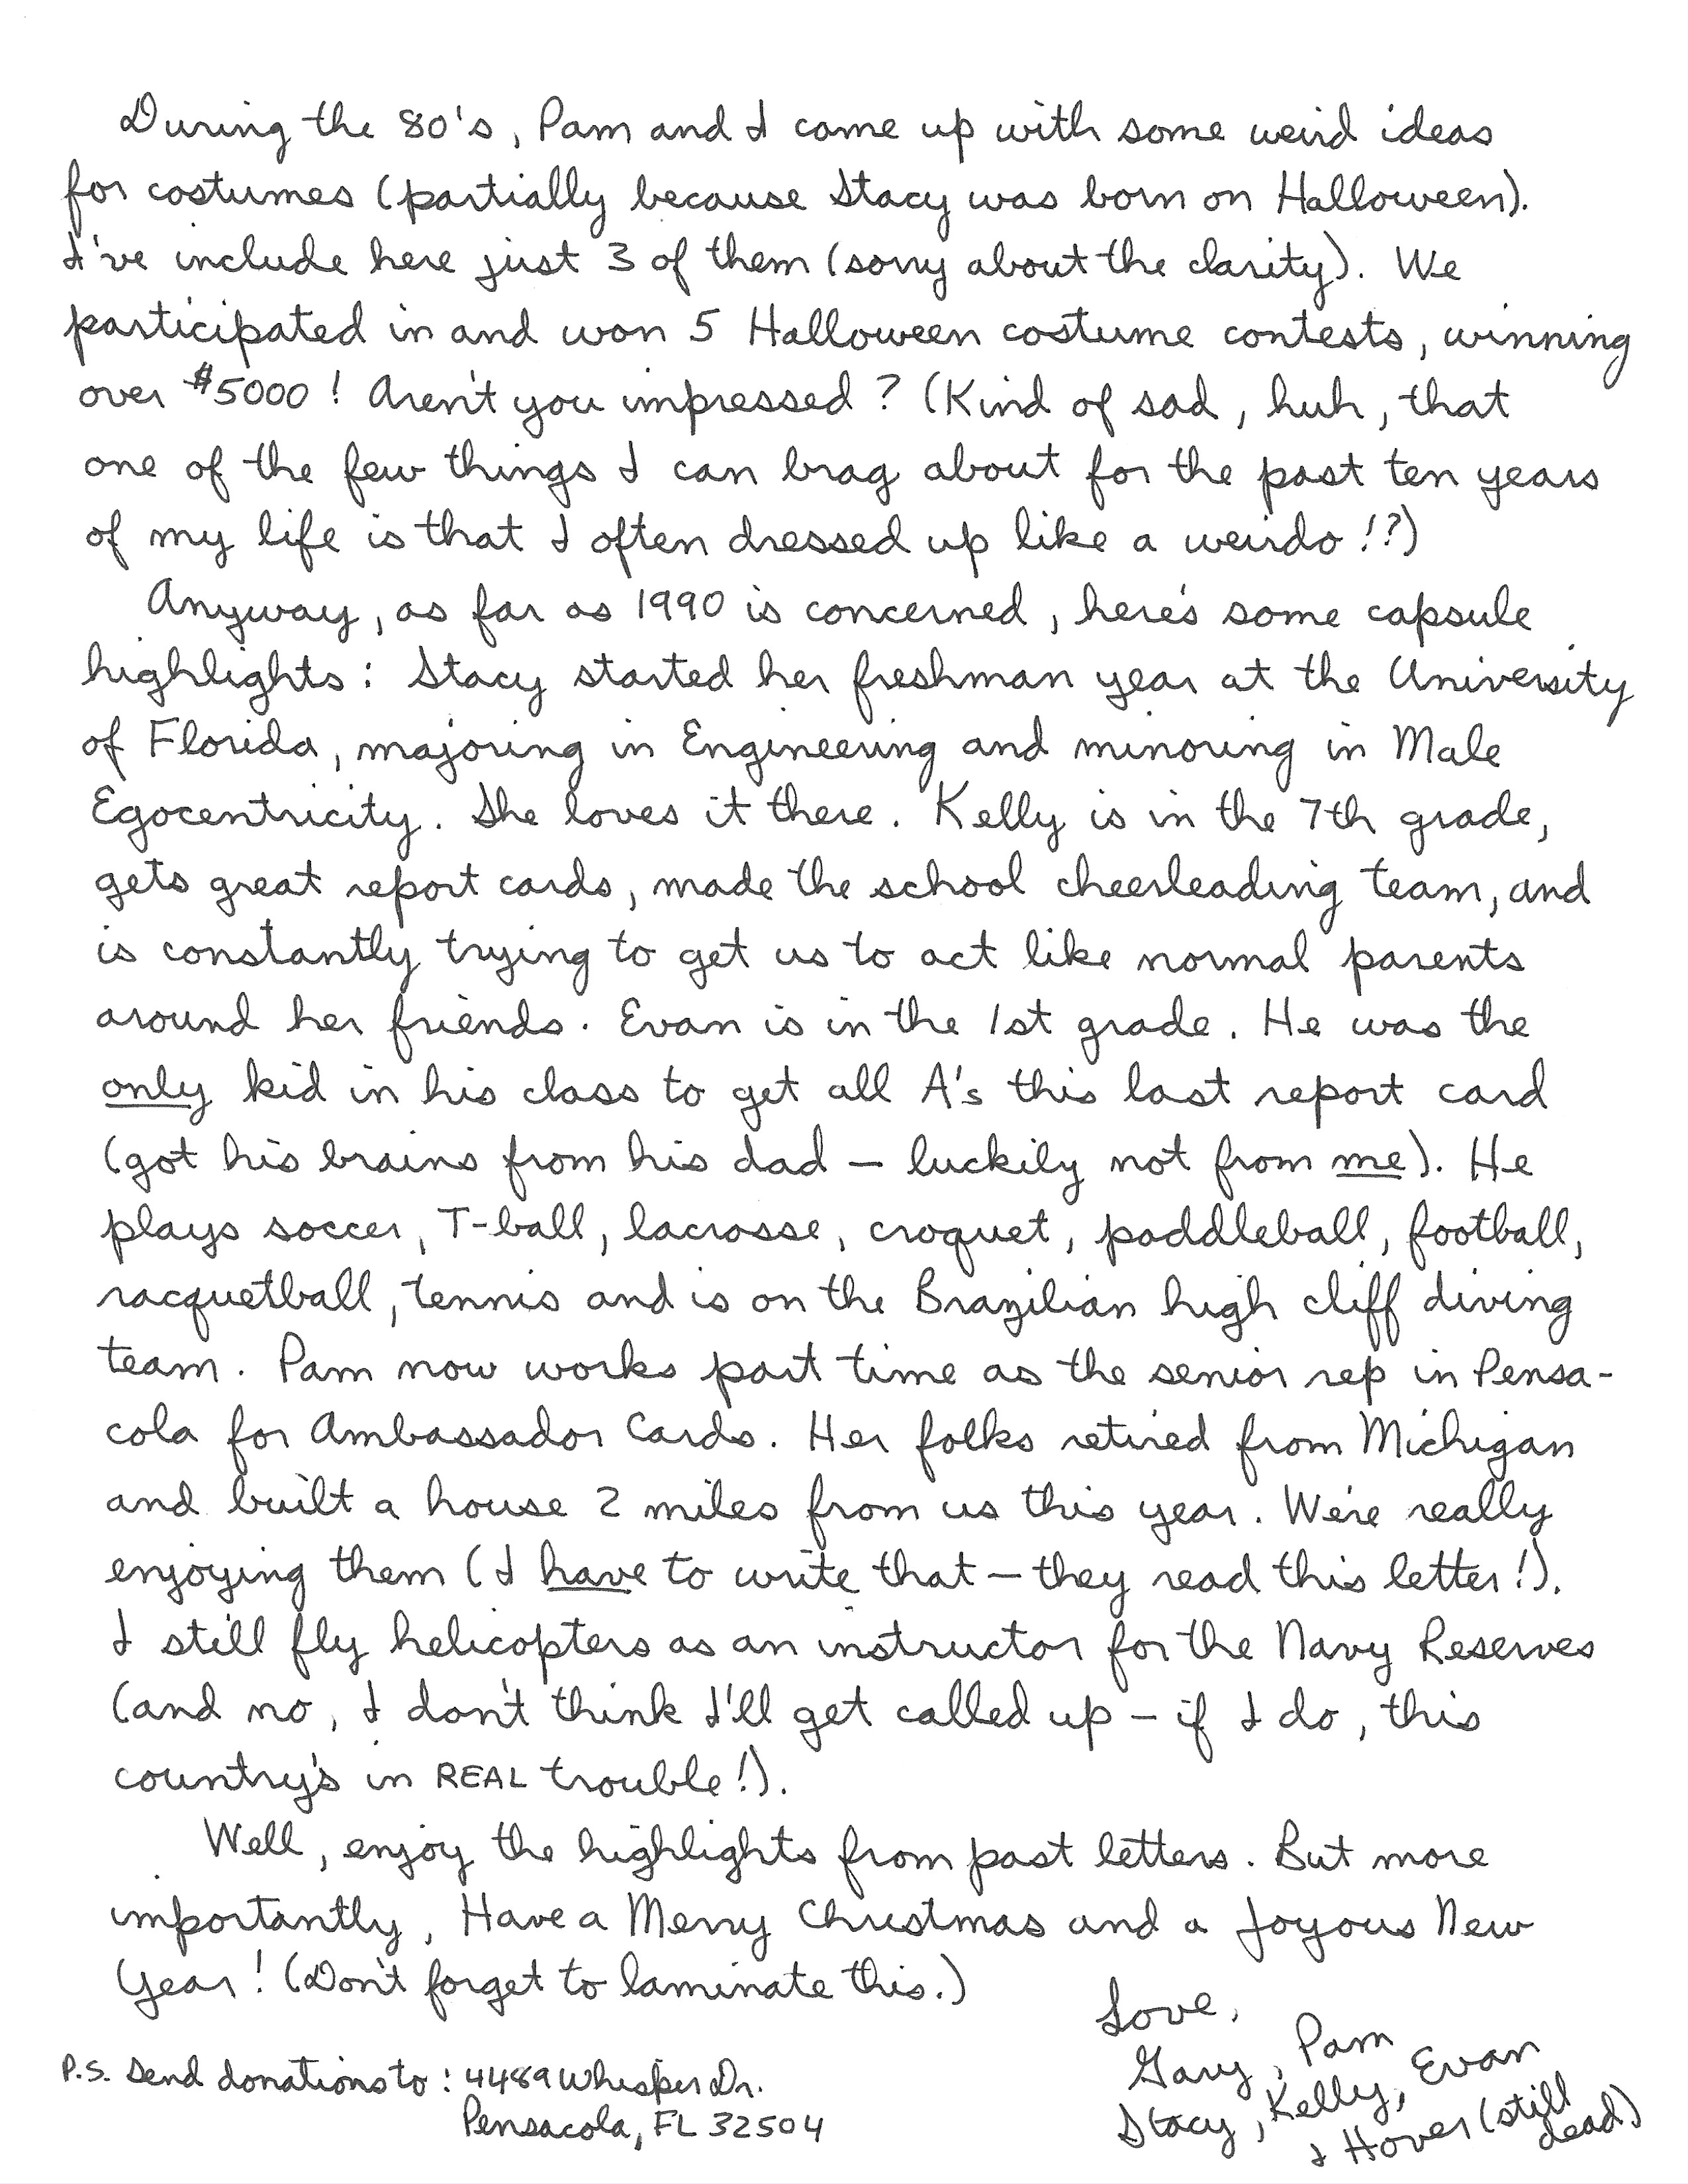 During the 80's, Pam and I came up with some weird ideas
for costumes (partially because Stacy was born on Halloween).
I've include here just 3 of them (sorry about the clarity). We
participated in and won 5 Halloween costume contests, winning
over $5000! Aren't you impressed? (Kind of sad, huh, that
one of the few things I can brag about for the past ten years
of my life is that I often dressed up like a weirdo!?)
Anyway, as far as 1990 is concerned, here's some capsule
highlights: Stacy started her freshman year at the University
of Florida, majoring in Engineering and minoring in Male
Egocentricity. She loves it there. Kelly is in the 7th grade,
gets great report cards, made the school cheerleading team, and
is constantly trying to get us to act like normal parents
around her friends. Evan is in the 1st grade. He was the
only kid in his class to get all A's this last report card
(got his brains from his dad – luckily not from me). He
plays soccer, T-ball, lacrosse, croquet, paddleball, football,
racquetball, tennis and is on the Brazilian high cliff diving
team. Pam now works part time as the senior rep in Pensa-
cola for Ambassador Cards. Her folks retired from Michigan
and built a house 2 miles from us this year. We're really
enjoying them (I have to write that – they read this letter!).
I still fly helicopters as an instructor for the Navy Reserves
(and no, I don't think I'll get called up – if I do, this
country's in REAL trouble!).
Well, enjoy the highlights from past letters. But more
importantly, Have a Merry Christmas and a Joyous New
Year! (Don't forget to laminate this.)
Love,
Gary, Pam
Stacy, Kelly, Evan
& Hover (still
dead)
P.S. Send donations to: 4489 Whisper Dr.
Pensacola, FL 32504